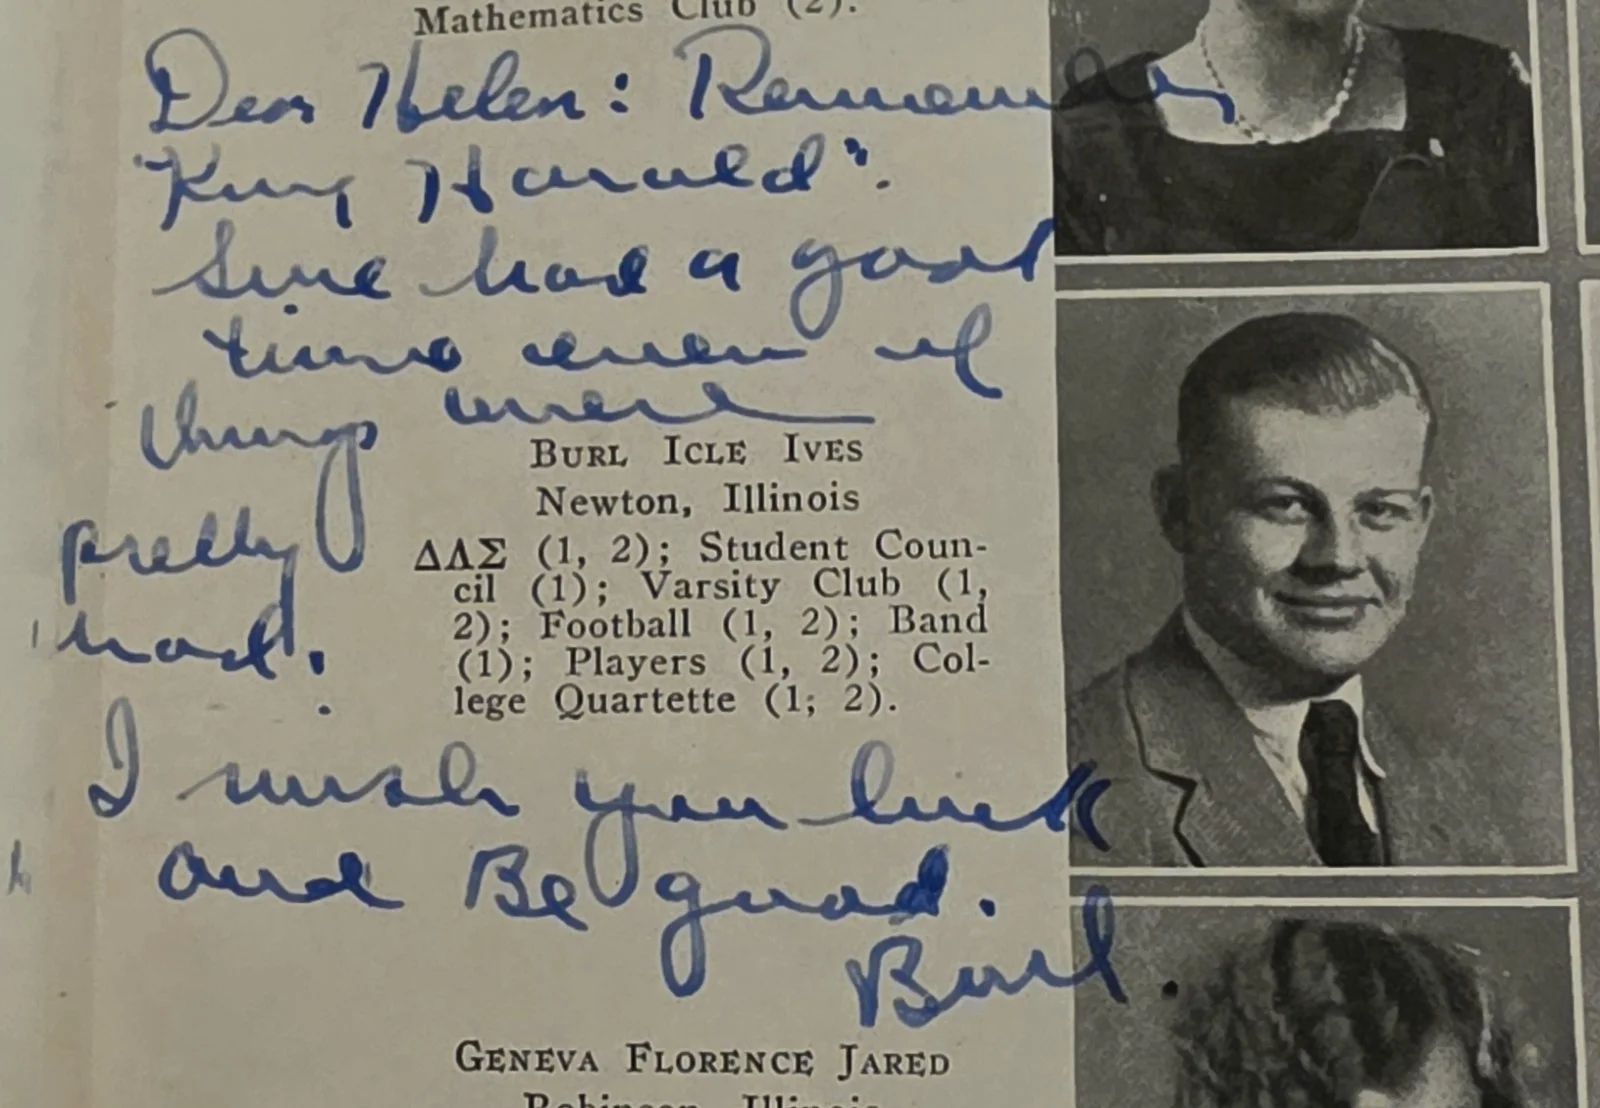 Mathematics Club (2).
Dear Helen: Remember
"King Harald".
Sure had a good
time even if
things were
BURL ICLE IVES
Newton, Illinois
pretty
ΔΛΣ (1, 2); Student Coun-
cil (1); Varsity Club (1,
2); Football (1, 2); Band
bad.
(1); Players (1, 2); Col-
lege Quartette (1; 2).
I wish you luck
and Be good.
Burl.
GENEVA FLORENCE JARED
Robinson, Illinois